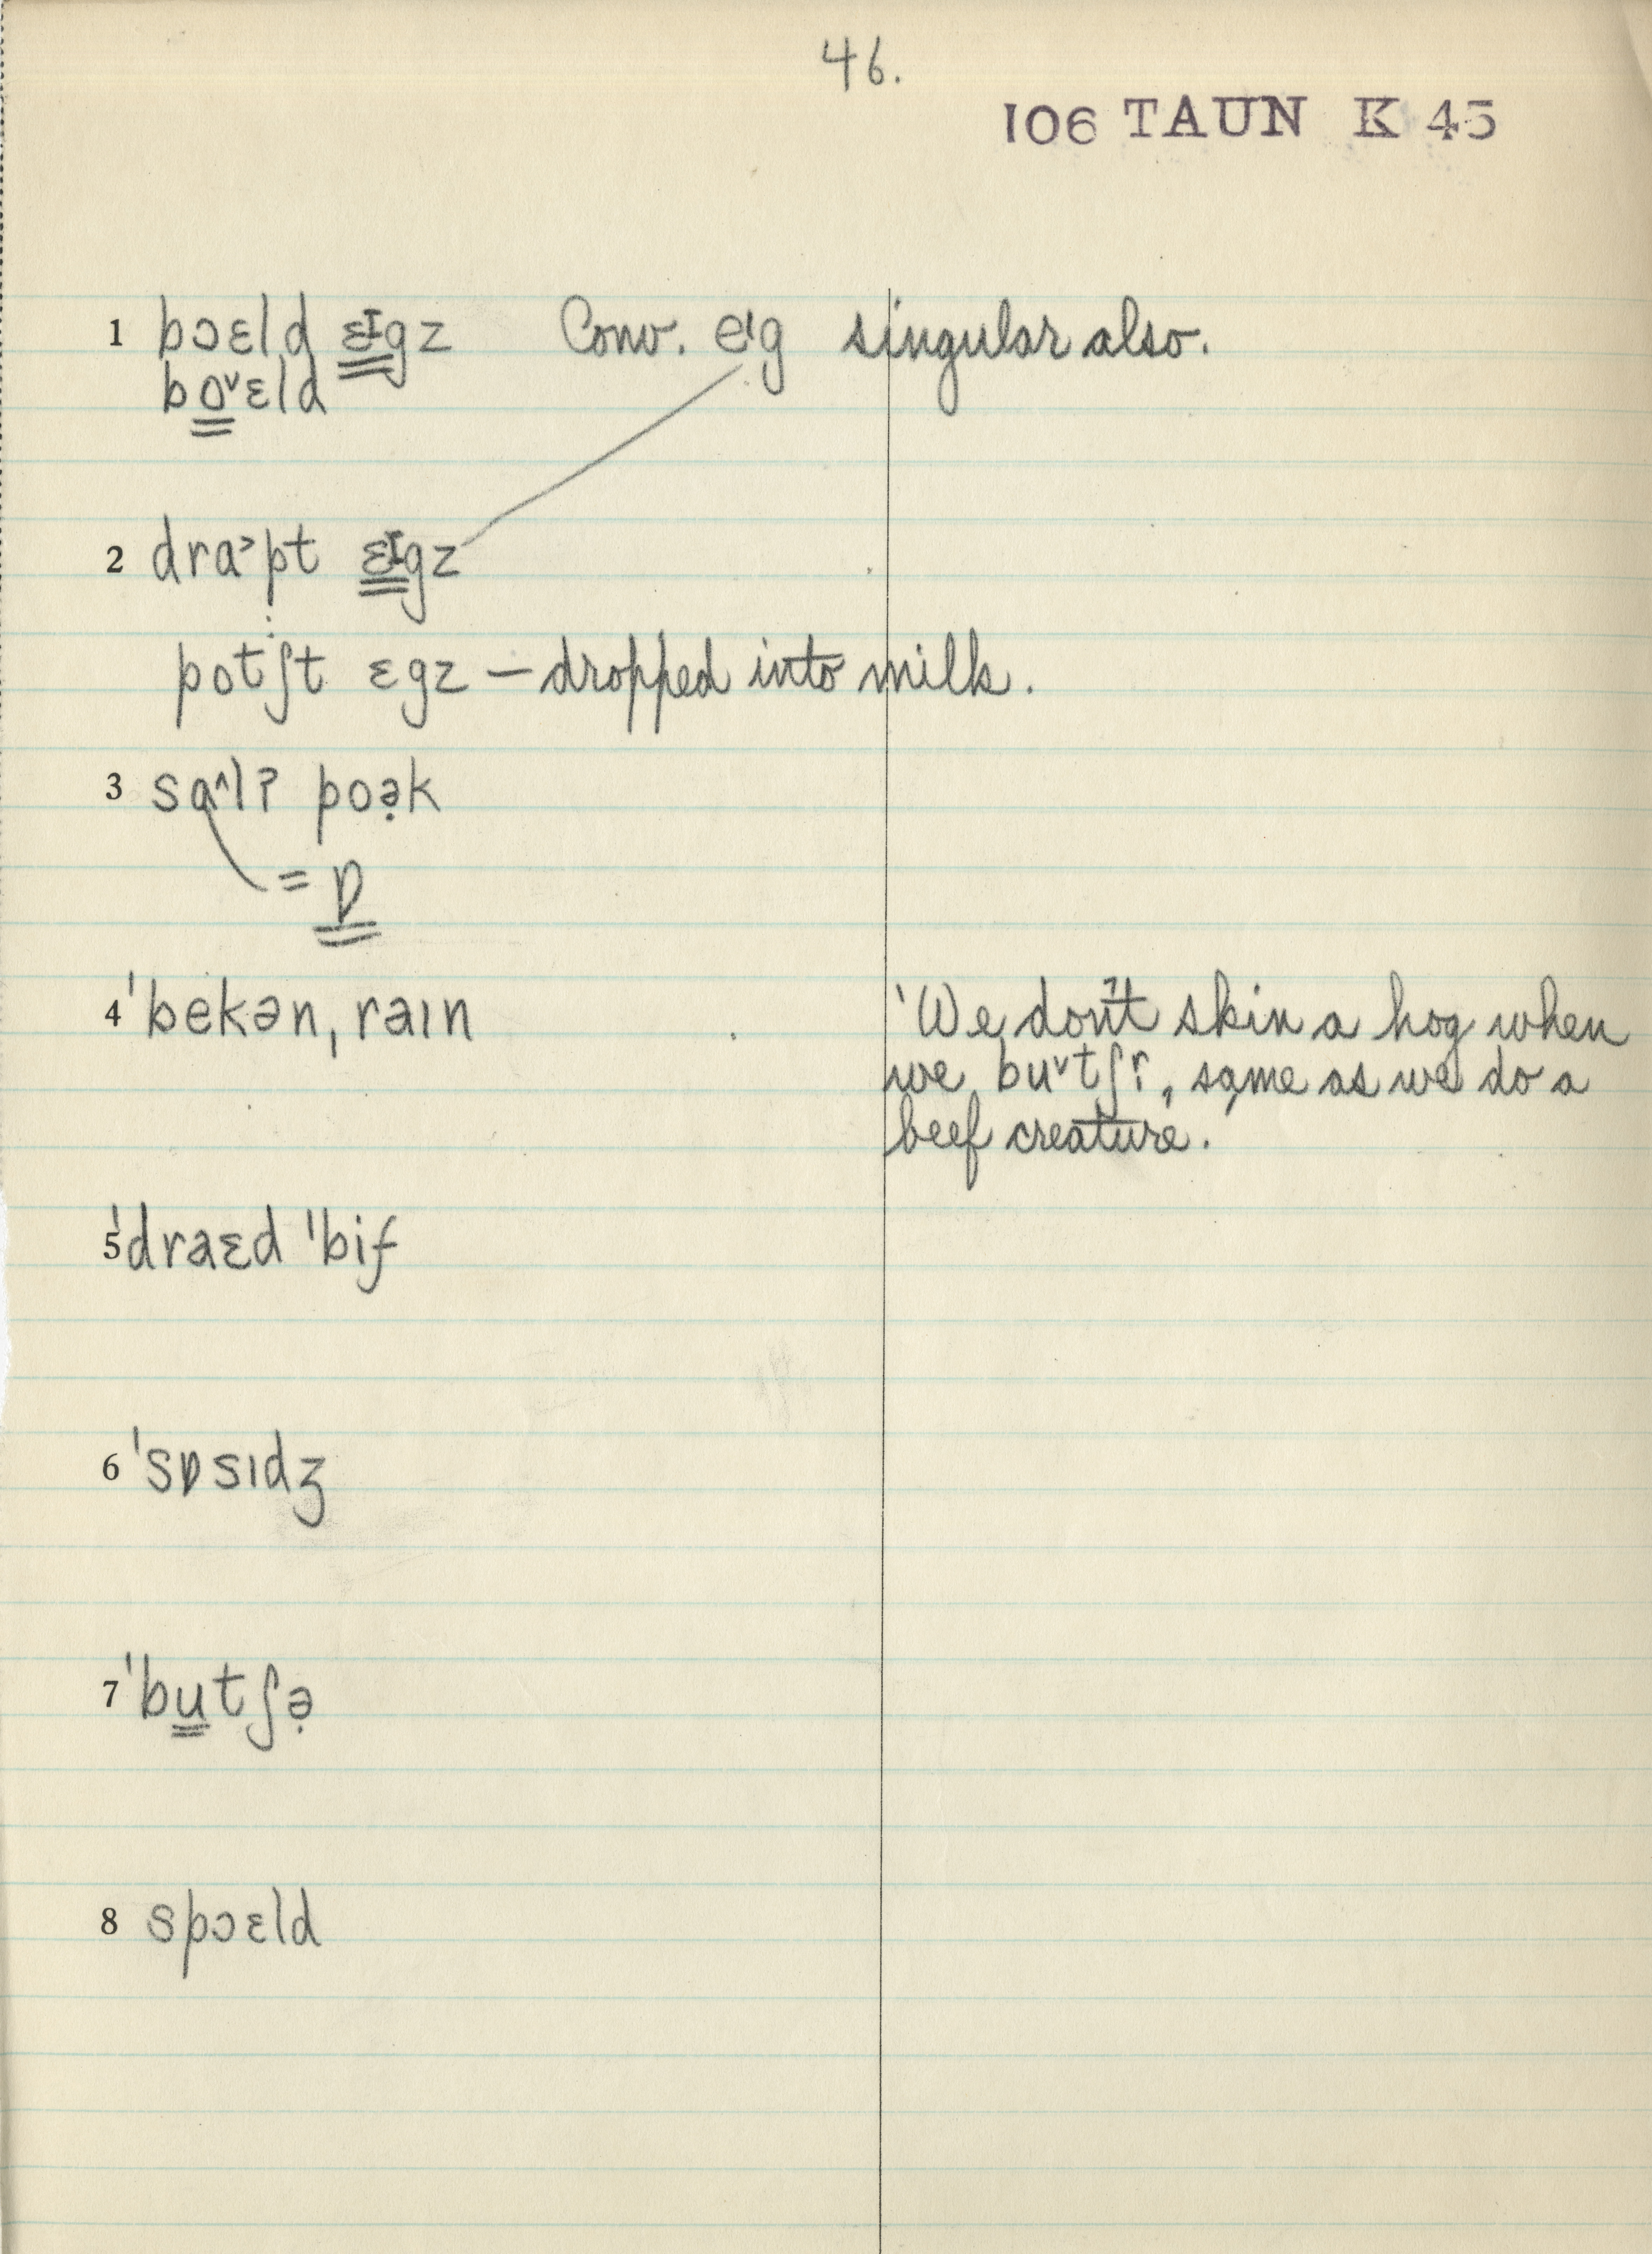 46.
106 TAUN K 45
1 bɔɛld ɛɪgz Conv. eɪg singular also.
bo˅ɛld
2 dra˃pt ɛɪgz
potʃt ɛgz — dropped into milk.
3 sɑ^lʔ poə̣k
= ɒ
4 ˈbekən, raɪn
'We don't skin a hog when
we bu˅tʃɾ, same as we do a
beef creature.'
5 ˈdraɛd ˈbif
6 ˈsɒsɪdʒ
7 ˈbutʃə̣
8 spɔɛld